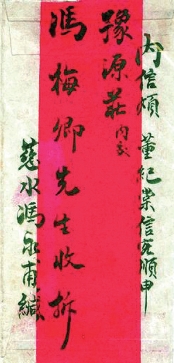 内信煩 董紀棠信宅順申
豫源莊內交
馮梅卿先生收拆
慈水馮永甫緘